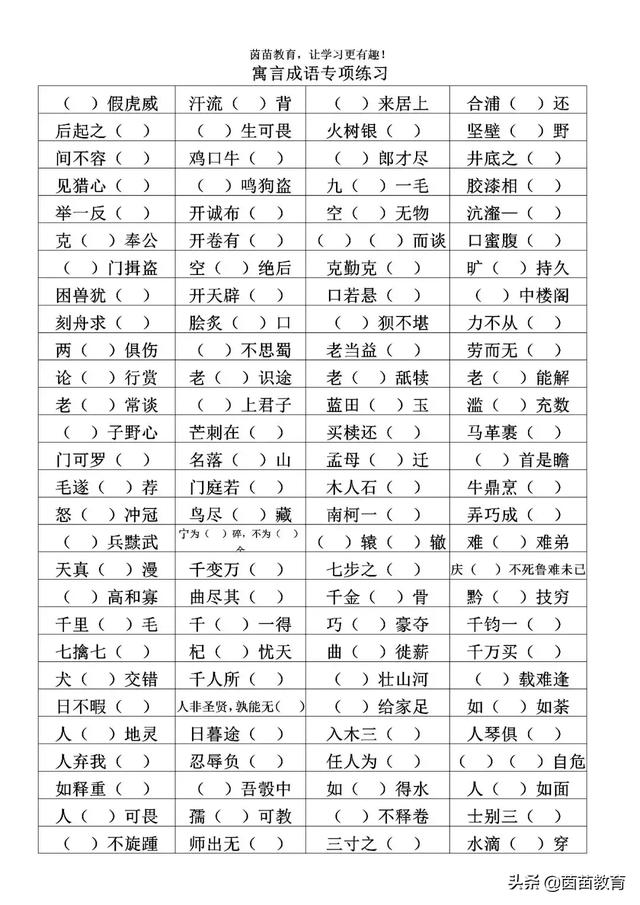 茵苗教育，让学习更有趣！
寓言成语专项练习
（ ）假虎威 汗流（ ）背 （ ）来居上 合浦（ ）还
后起之（ ） （ ）生可畏 火树银（ ） 坚壁（ ）野
间不容（ ） 鸡口牛（ ） （ ）郎才尽 井底之（ ）
见猎心（ ） （ ）鸣狗盗 九（ ）一毛 胶漆相（ ）
举一反（ ） 开诚布（ ） 空（ ）无物 沆瀣—（ ）
克（ ）奉公 开卷有（ ） （ ）（ ）而谈 口蜜腹（ ）
（ ）门揖盗 空（ ）绝后 克勤克（ ） 旷（ ）持久
困兽犹（ ） 开天辟（ ） 口若悬（ ） （ ）中楼阁
刻舟求（ ） 脍炙（ ）口 （ ）狈不堪 力不从（ ）
两（ ）俱伤 （ ）不思蜀 老当益（ ） 劳而无（ ）
论（ ）行赏 老（ ）识途 老（ ）舐犊 老（ ）能解
老（ ）常谈 （ ）上君子 蓝田（ ）玉 滥（ ）充数
（ ）子野心 芒刺在（ ） 买椟还（ ） 马革裹（ ）
门可罗（ ） 名落（ ）山 孟母（ ）迁 （ ）首是瞻
毛遂（ ）荐 门庭若（ ） 木人石（ ） 牛鼎烹（ ）
怒（ ）冲冠 鸟尽（ ）藏 南柯一（ ） 弄巧成（ ）
（ ）兵黩武 宁为（ ）碎，不为（ ）全 （ ）辕（ ）辙 难（ ）难弟
天真（ ）漫 千变万（ ） 七步之（ ） 庆（ ）不死鲁难未已
（ ）高和寡 曲尽其（ ） 千金（ ）骨 黔（ ）技穷
千里（ ）毛 千（ ）一得 巧（ ）豪夺 千钧一（ ）
七擒七（ ） 杞（ ）忧天 曲（ ）徙薪 千万买（ ）
犬（ ）交错 千人所（ ） （ ）壮山河 （ ）载难逢
日不暇（ ） 人非圣贤，孰能无（ ） （ ）给家足 如（ ）如荼
人（ ）地灵 日暮途（ ） 入木三（ ） 人琴俱（ ）
人弃我（ ） 忍辱负（ ） 任人为（ ） （ ）（ ）自危
如释重（ ） （ ）吾彀中 如（ ）得水 人（ ）如面
人（ ）可畏 孺（ ）可教 （ ）不释卷 士别三（ ）
（ ）不旋踵 师出无（ ） 三寸之（ ） 水滴（ ）穿
头条 @茵苗教育